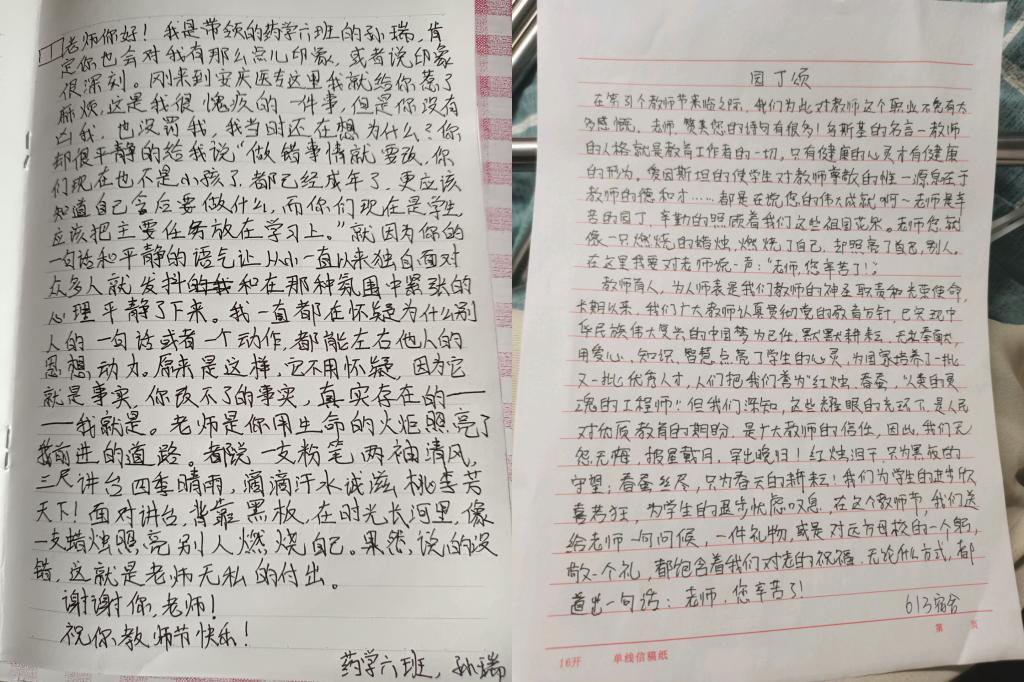 老师你好！我是带领的药学六班的孙瑞，肯
定你也会对我有那么点儿印象，或者说印象
很深刻。刚来到安庆医专这里我就给你惹了
麻烦，这是我很愧疚的一件事，但是你没有
凶我，也没罚我，我当时还在想为什么？你
却很平静的给我说“做错事情就要改，你
们现在也不是小孩了，都已经成年了，更应该
知道自己今后要做什么，而你们现在是学生
应该把主要任务放在学习上。”就因为你的
一句话和平静的语气让从小一直以来独自面对
众多人就发抖的我和在那种氛围中紧张的
心理平静了下来。我一直都在怀疑为什么别
人的一句话或者一个动作，都能左右他人的
思想动力。原来是这样，它不用怀疑，因为它
就是事实，你改不了的事实，真实存在的——
——我就是。老师是你用生命的火炬照亮了
我前进的道路。都说一支粉笔两袖清风，
三尺讲台四季晴雨，滴滴汗水诚滋桃李芳
天下！面对讲台，背靠黑板，在时光长河里，像
一支蜡烛照亮别人燃烧自己。果然，说的没
错，这就是老师无私的付出。
谢谢你，老师！
祝你教师节快乐！
药学六班，孙瑞
园丁颂
在第31个教师节来临之际，我们为此对教师这个职业不免有太
多感慨。老师，赞美您的诗句有很多！乌斯基的名言一教师
的人格就是教育工作者的一切，只有健康的心灵才有健康
的行为。爱因斯坦的使学生对教师尊敬的惟一源泉在于
教师的德和才……都是在说您的伟大成就啊~老师是辛
苦的园丁，辛勤的照顾着我们这些祖国花朵。老师您就
像一只燃烧的蜡烛，燃烧了自己，却照亮了自己，别人。
在这里我要对老师说一声：“老师，您辛苦了！”；
教师育人，为人师表是我们教师的神圣职责和光荣使命，
长期以来，我们广大教师认真贯彻党的教育方针，已实现中
华民族伟大复兴的中国梦为己任，默默耕耘，无私奉献，
用爱心、知识、智慧点亮了学生的心灵，为国家培养了一批
又一批优秀人才，人们把我们誉为“红烛、春蚕，“人类的灵
魂的工程师”！但我们深知，这些耀眼的光环下，是人民
对优质教育的期盼，是广大教师的信任，因此，我们无
怨无悔，披星戴月，早出晚归！红烛泪干，只为黑板的
守望；春蚕丝尽，只为春天的耕耘！我们为学生的进步欣
喜若狂，为学生的退步忧虑叹息，在这个教师节，我们送
给老师一句问候，一件礼物，或是对远方母校的一个躬，
敬一个礼，都饱含着我们对老的祝福，无论什么方式，都
道出一句话：老师，您辛苦了！
613宿舍
第 页
16开 单线信稿纸